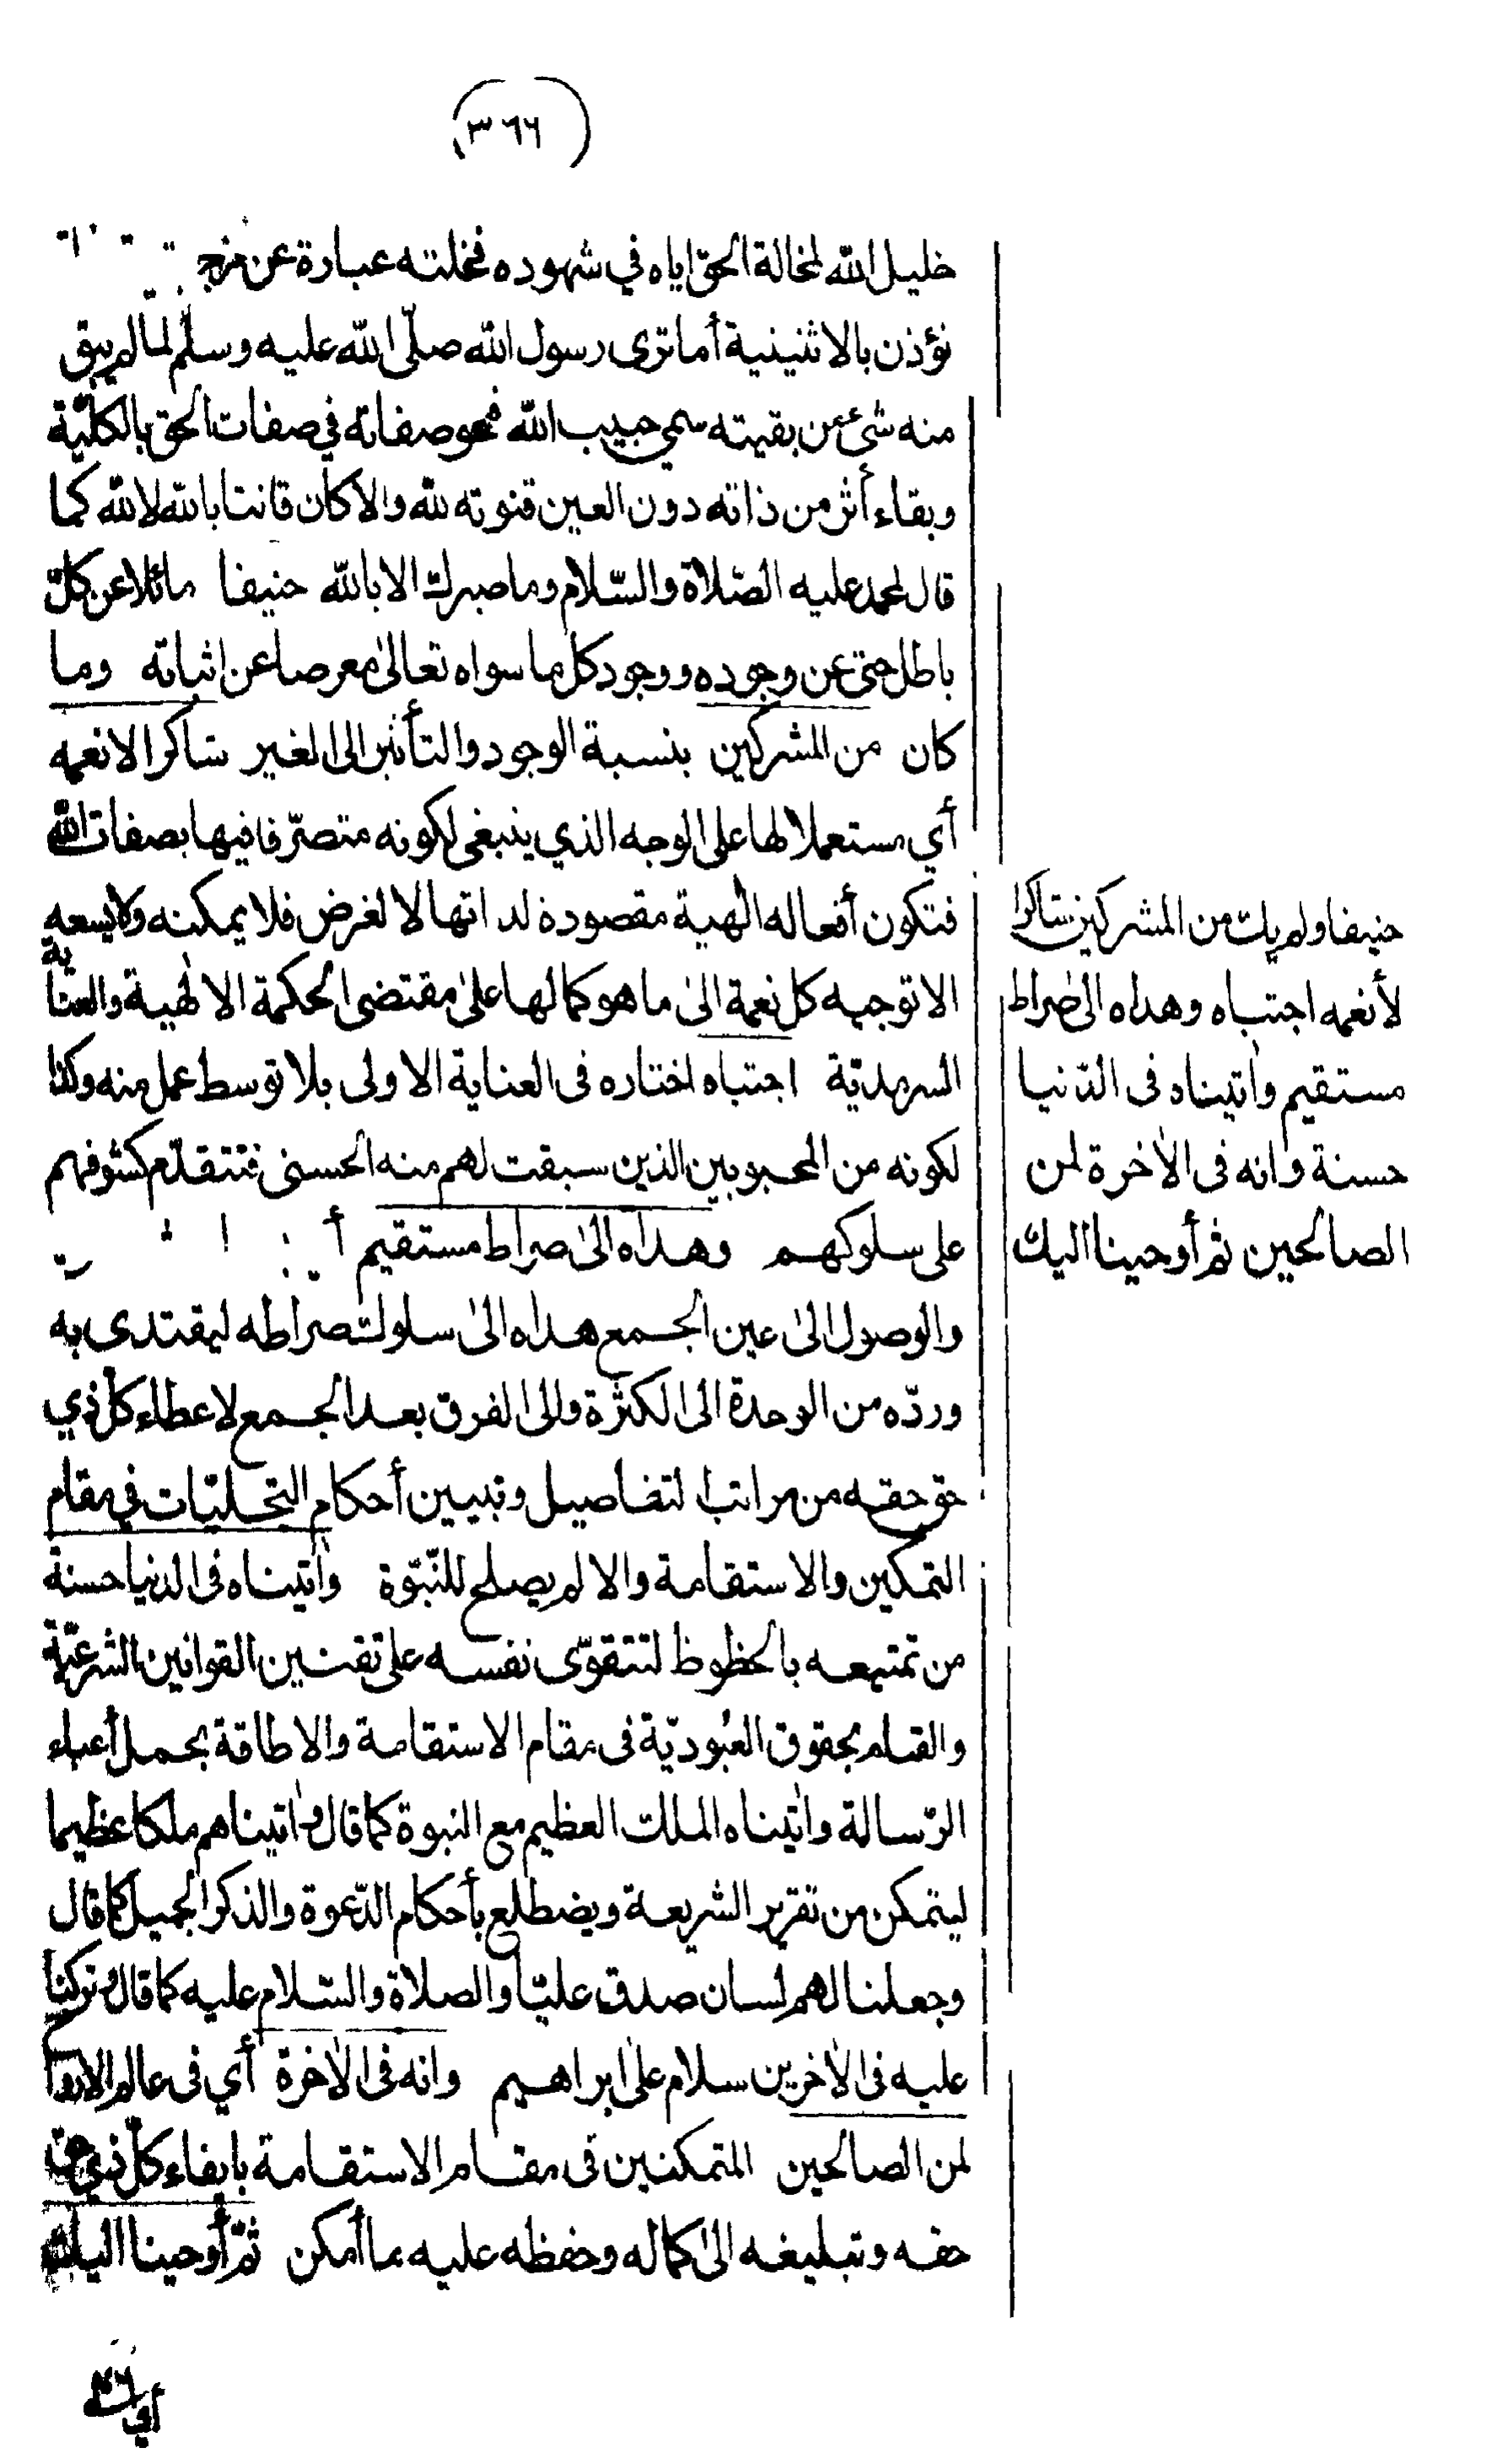 (٣٦٦)
خليل الله لمخالة الحقّ اياه في شهوده فخلته عبارة عن مزج
نؤذن بالاثنينية أما ترى رسول الله صلّى الله عليه وسلّم لما لم يبق
منه شئ من بقيته سمي حبيب الله فمحو صفاته في صفات الحق بالكلّيّة
وبقاء أثر من ذاته دون العين قنوته لله والا كان قانتا بالله لا لله كما
قال لمحمد عليه الصّلاة والسّلام وما صبرك الا بالله حنيفا مائلا عن كلّ
باطل حتى عن وجوده ووجود كل ما سواه تعالى معرضا عن اثباته وما
كان من المشركين بنسبة الوجود والتأثير الى الغير شاكرا لانعمه
أي مستعملا لها على الوجه الذي ينبغي لكونه متصرّفا فيها بصفات الله
فتكون أفعاله الهية مقصودة لذاتها لا لغرض فلا يمكنه ولا يسعه
الا توجيه كل نعمة الى ما هو كمالها على مقتضى الحكمة الالهية والعناية
السرمديّة اجتباه اختاره فى العناية الاولى بلا توسط عمل منه وكذا
لكونه من المحبوبين الذين سبقت لهم منه الحسنى فتتقدّم كشوفهم
على سلوكهم وهداه الى صراط مستقيم
والوصول الى عين الجمع هداه الى سلوك صراطه ليقتدى به
وردّه من الوحدة الى الكثرة والى الفرق بعد الجمع لاعطاء كلّ ذي
حق حقه من مراتب التفاصيل وتبيين أحكام التجليّات في مقام
التمكين والاستقامة والا لم يصلح للنّبوّة وآتيناه فى الدنيا حسنة
من تمتيعه بالحظوظ لتتقوّى نفسه على تقنين القوانين الشرعيّة
والقيام بحقوق العُبوديّة فى مقام الاستقامة والاطاقة بحمل أعباء
الرّسالة وآتيناه الملك العظيم مع النبوة كما قال وآتيناهم ملكا عظيما
ليتمكن من تقرير الشريعة ويضطلع بأحكام الدّعوة والذكر الجميل كما قال
وجعلنا لهم لسان صدق عليّا والصلاة والسّلام عليه كما قال وتركنا
عليه فى الآخرين سلام على ابراهيم وانه فى الآخرة أي فى عالم الارواح
لمن الصالحين المتمكنين فى مقام الاستقامة بايفاء كلّ ذي حق
حقه وتبليغه الى كماله وحفظه عليه ما أمكن ثمّ أوحينا اليك
أي
حنيفا ولم يك من المشركين شاكرا
لأنعمه اجتباه وهداه الى صراط
مستقيم وآتيناه فى الدّنيا
حسنة وانه فى الآخرة لمن
الصالحين ثم أوحينا اليك